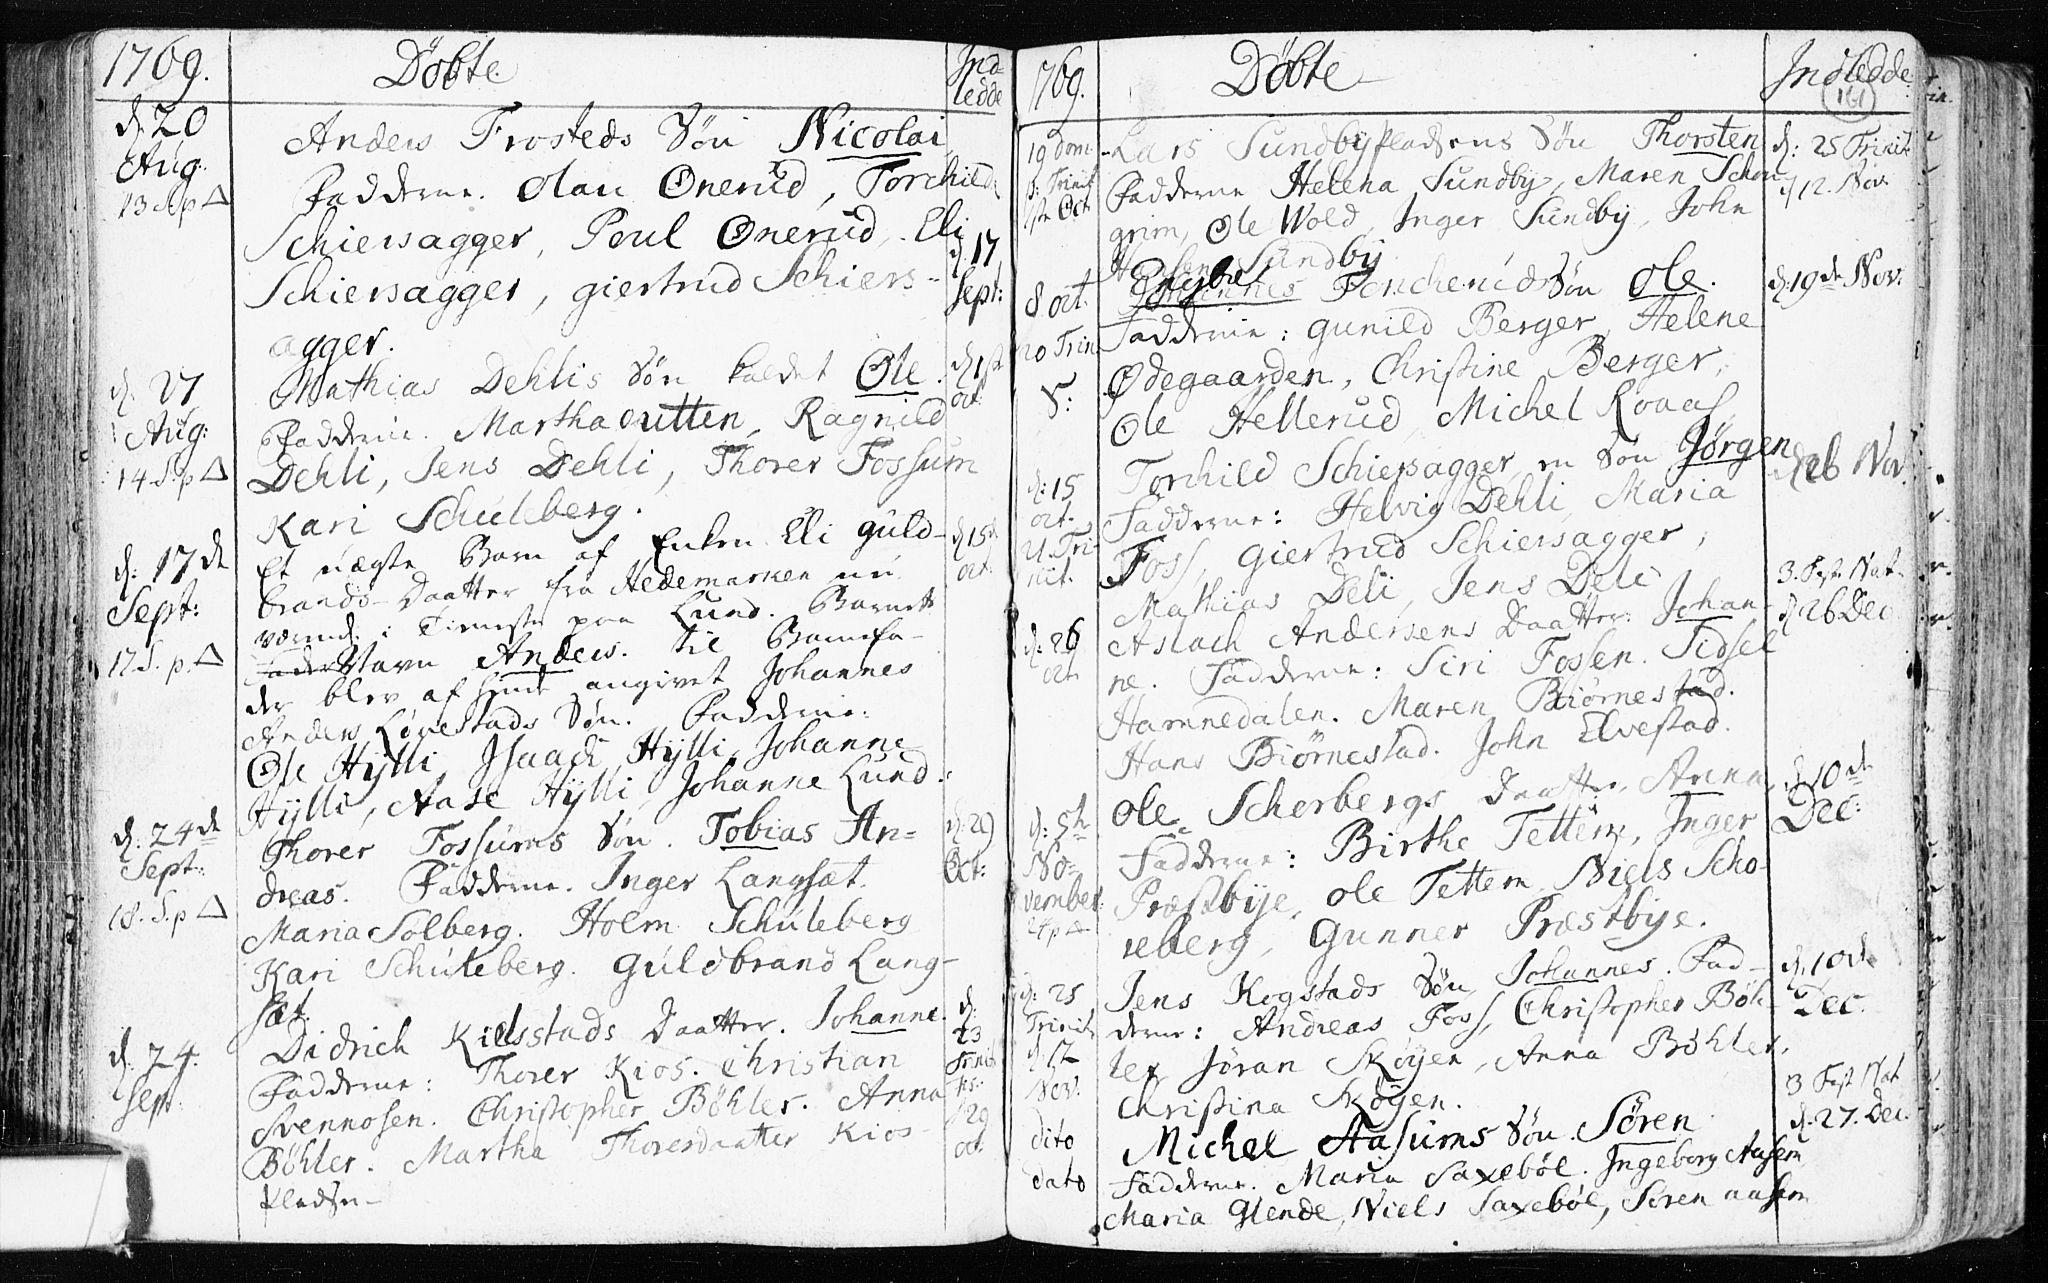 1769.
Döbte
Ind-
ledde
d. 20
Aug.
13 S. p Δ
Anders Frosteds Søn Nicolai
Fadderne. Olau Onerud, Torchild
Schiersagger, Poul Onerud, Eli
Schiersagger, giertrud Schiers-
agger.
d 17
Sept:
d. 27
Aug:
14 S. p Δ
Mathias Dehlis Søn kaldet Ole.
Fadderne. Martha Rutten, Ragnild
Dehli, Jens Dehli, Thorer Fossum
Kari Schuleberg.
d 1ste
oct:
d: 17de
Sept:
17. S. p. Δ
Et uægte Barn af Enken Eli Guld-
brands-Daatter fra Hedemarken nu
værende i Tieneste paa Lund. Barnets
Navn Anders. til Barnefa-
der blev af hende angivet Johannes
Anders Løvestads Søn. Fadderne:
Ole Hylli, Isaach Hylli, Johanne
Hylli, Aase Hylli, Johanne Lund.
d 15de
oct.
d. 24de
Sept.
18. S. p Δ
Thorer Fossums Søn. Tobias An-
dreas. Fadderne. Inger Langsæt.
Maria Solberg. Holm Schuleberg
Kari Schuleberg. Guldbrand Lang-
sæt.
d. 29
Oct:
d. 24.
Sept
Didrich Kielsstads Daatter. Johanne.
Fadderne: Thorer Kios. Christian
Svennosen. Christopher Bøhler. Anna
Bøhler. Martha Thorersdaatter Kios-
Pladsen-
d.
23
Trinit
29
oct.
1769.
Döbte
Indledde
161
19 Dom
p: Trinit
1ste Oct
Lars Sundby Pladsens Søn Thorsten
Fadderne Helena Sundby, Maren Schou
grim, Ole Wold, Inger Sundby, John
Hansen Sundby
d: 25 Trinit
d 12. Nov.
8 oct.
20 Trin
Engebr
Johannes Foncheruds Søn Ole.
Fadderne: gunild Berger, Helene
Ødegaarden, Christine Berger,
Ole Hellerud, Michel Roaas
d. 19de Nov:
d: 15
oct.
21. Tri-
nit.
Torchild Schiersagger en Søn Jørgen
Fadderne: Helvig Dehli, Maria
Foss, Giertrud Schiersagger,
Mathias Deli, Jens Deli
d 26 Nov.
d: 26
oct
Aslach Andersens Daatter: Johan-
ne. Fadderne: Siri Fossen. Sidsel
Hamnedalen. Maren Biørnestad.
Hans Biørnestad. John Elvestad.
3. Fest. Nat.
d 26 Dec
d: 5te
No-
vember:
24 p Δ
Ole Scherbergs Daatter, Anna,
Fadderne: Birthe Tettem, Inger
Præstbye, Ole Tettem, Niels Scho-
leberg, Gunner Præstbye.
d. 10de
Dec:
d: 25
Trinit
d. 12
Nov.
Jens Kogstads Søn Johannes. Fad-
derne: Andreas Foss, Christopher Bøh-
ler Jøran Skøyen, Anna Bøhler,
Christina Skøyen.
d. 10de
Dec.
dito
dato
Michel Aasums Søn. Søren
Fadderne. Maria Saxebøl. Ingeborg Aasem
Maria Glende, Niels Saxebøl, Søren aasem
3 Fest Nat
d. 27. Dec.